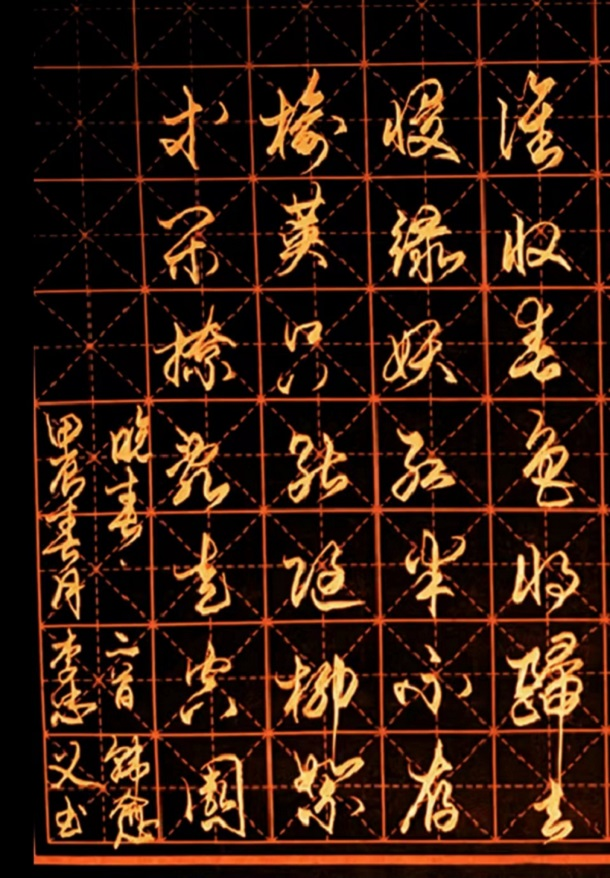 谁收春色将歸去
慢绿妖红半不存
榆荚只能随柳絮
等闲撩乱走空園
晚春、二首 韩愈
甲辰春月 李忠义书